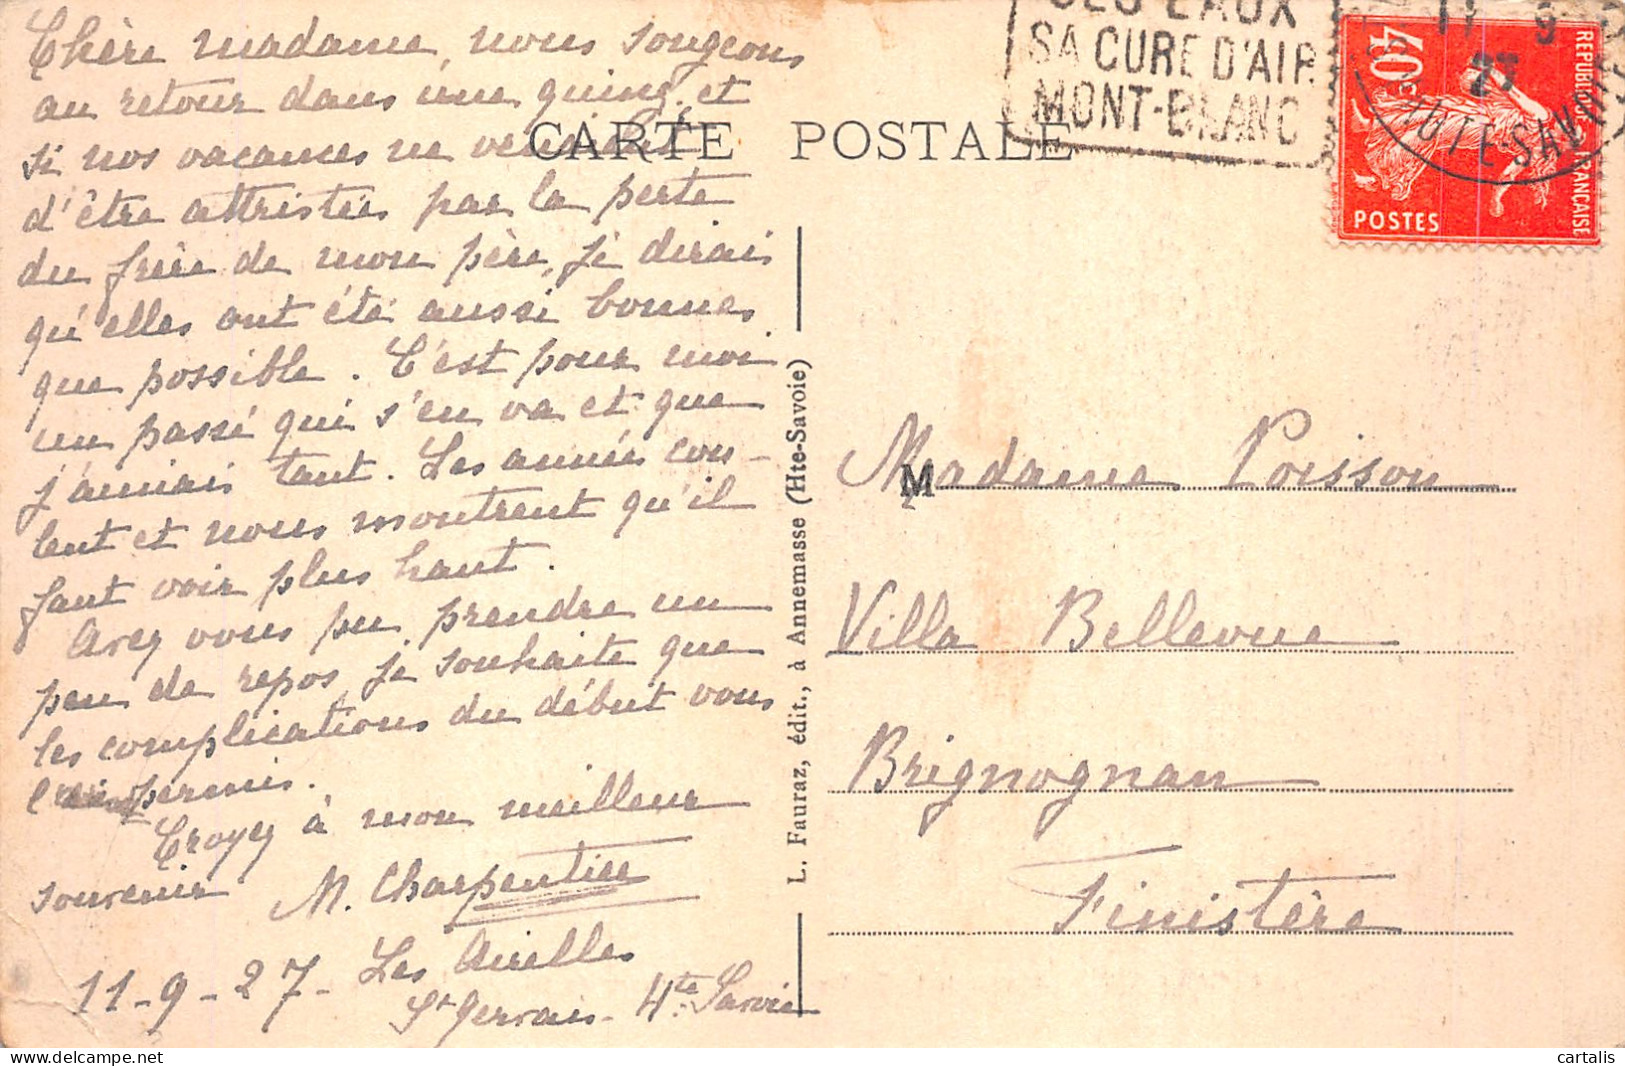 Chère madame, nous songeons
au retour dans une quinz. et
si nos vacances ne venaient
d'être attristées par la perte
du frère de mon père, je dirais
qu'elles ont été aussi bonnes
que possible. C'est pour moi
un passé qui s'en va et que
j'aimais tant. Les années cou-
lent et nous montrent qu'il
faut voir plus haut.
Avez vous pu prendre un
peu de repos, je souhaite que
les complications du début vous
permis.
Croyez à mon meilleur
souvenir M. Charpentier
11-9-27- Les Airelles
St Gervais- Hte Savoie
CARTE POSTALE
L. Fauraz, édit., à Annemasse (Hte-Savoie)
SES EAUX
SA CURE D'AIR
MONT-BLANC
11 9
27
HAUTE-SAVOIE
40c
REPUBLIQUE FRANÇAISE
POSTES
M
Madame Poisson
Villa Bellevue
Brignognan
Finistère
cartalis